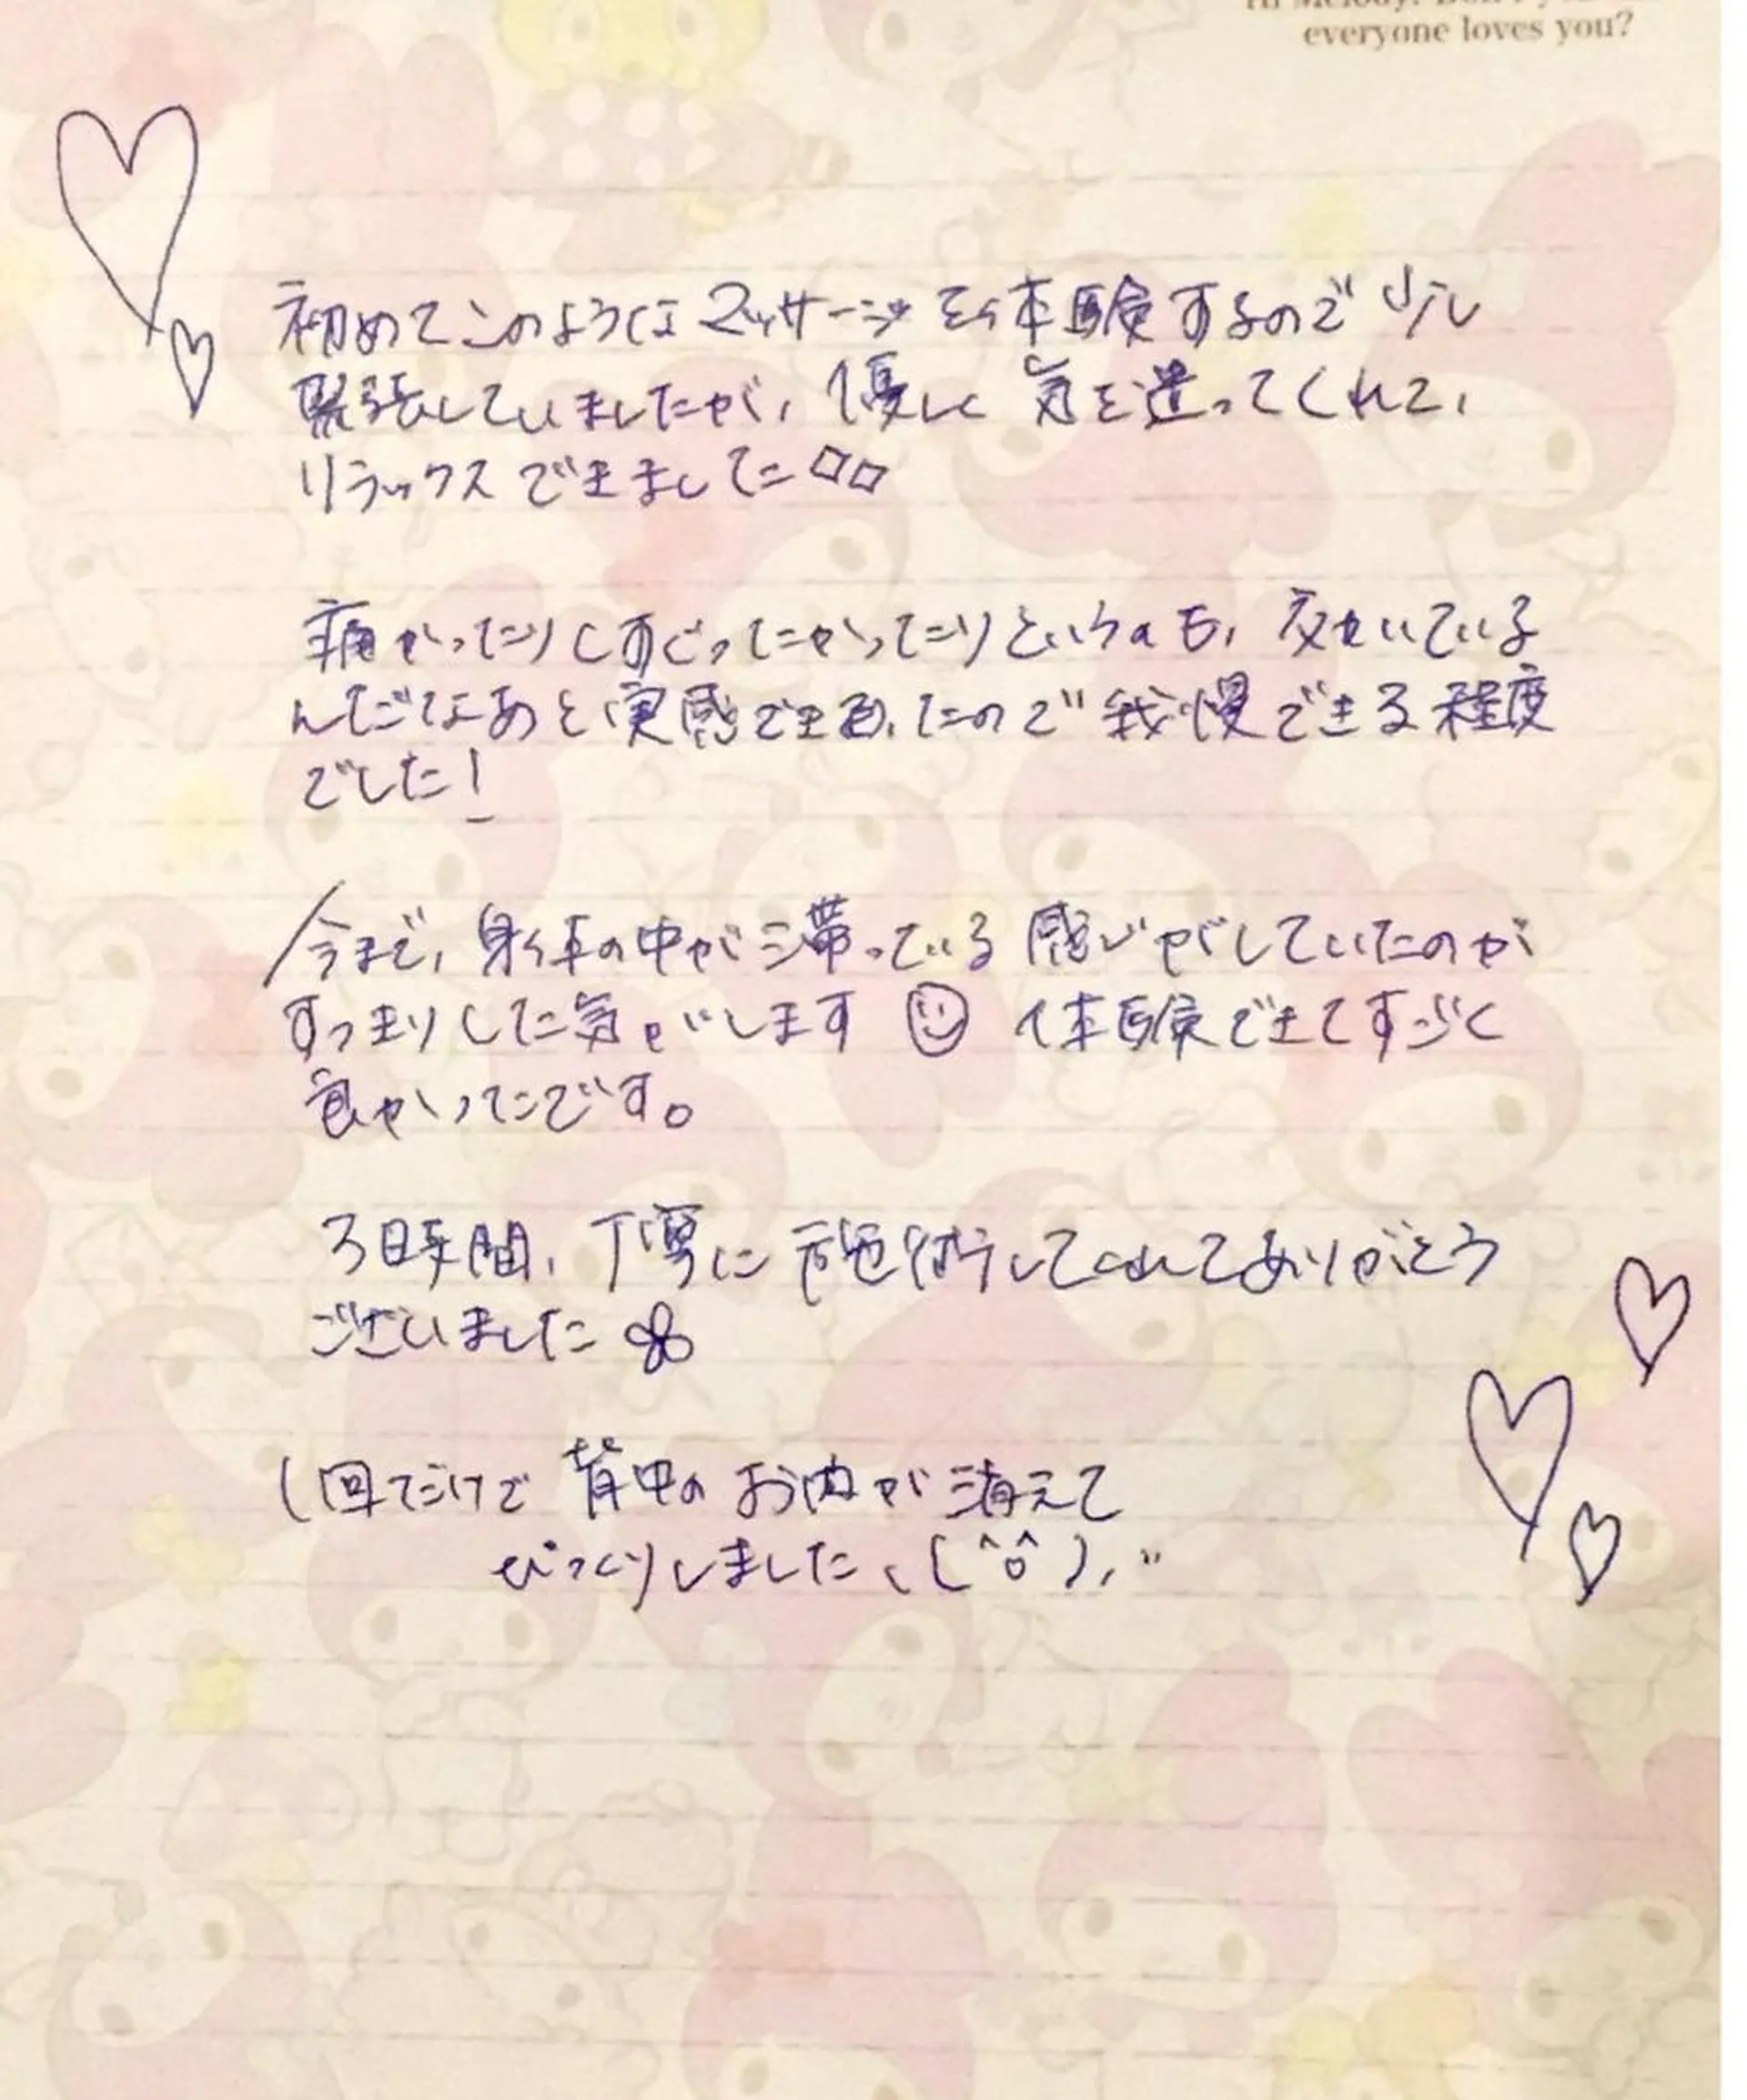 everyone loves you?
初めてこのようなマッサージを体験するので少し
緊張していましたが、優しく気を遣ってくれて、
リラックスできました◇◇
痛かったりくすぐったかったりというのも、効いている
んだなあと実感できましたので我慢できる程度
でした!
今まで、身体の中が滞っている感じがしていたのが
すっきりした気がします☺ 体験できてすごく
良かったです。
3時間、丁寧に施術してくれてありがとう
ございました✿
1回だけで背中のお肉が消えて
びっくりしました、(^o^)、"